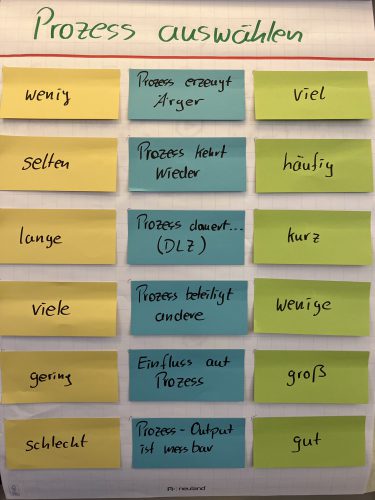 Prozess auswählen
wenig
Prozess erzeugt
Ärger
viel
selten
Prozess kehrt
wieder
häufig
lange
Prozess dauert...
(DLZ)
kurz
viele
Prozess beteiligt
andere
wenige
gering
Einfluss auf
Prozess
groß
schlecht
Prozess-Output
ist messbar
gut
neuland